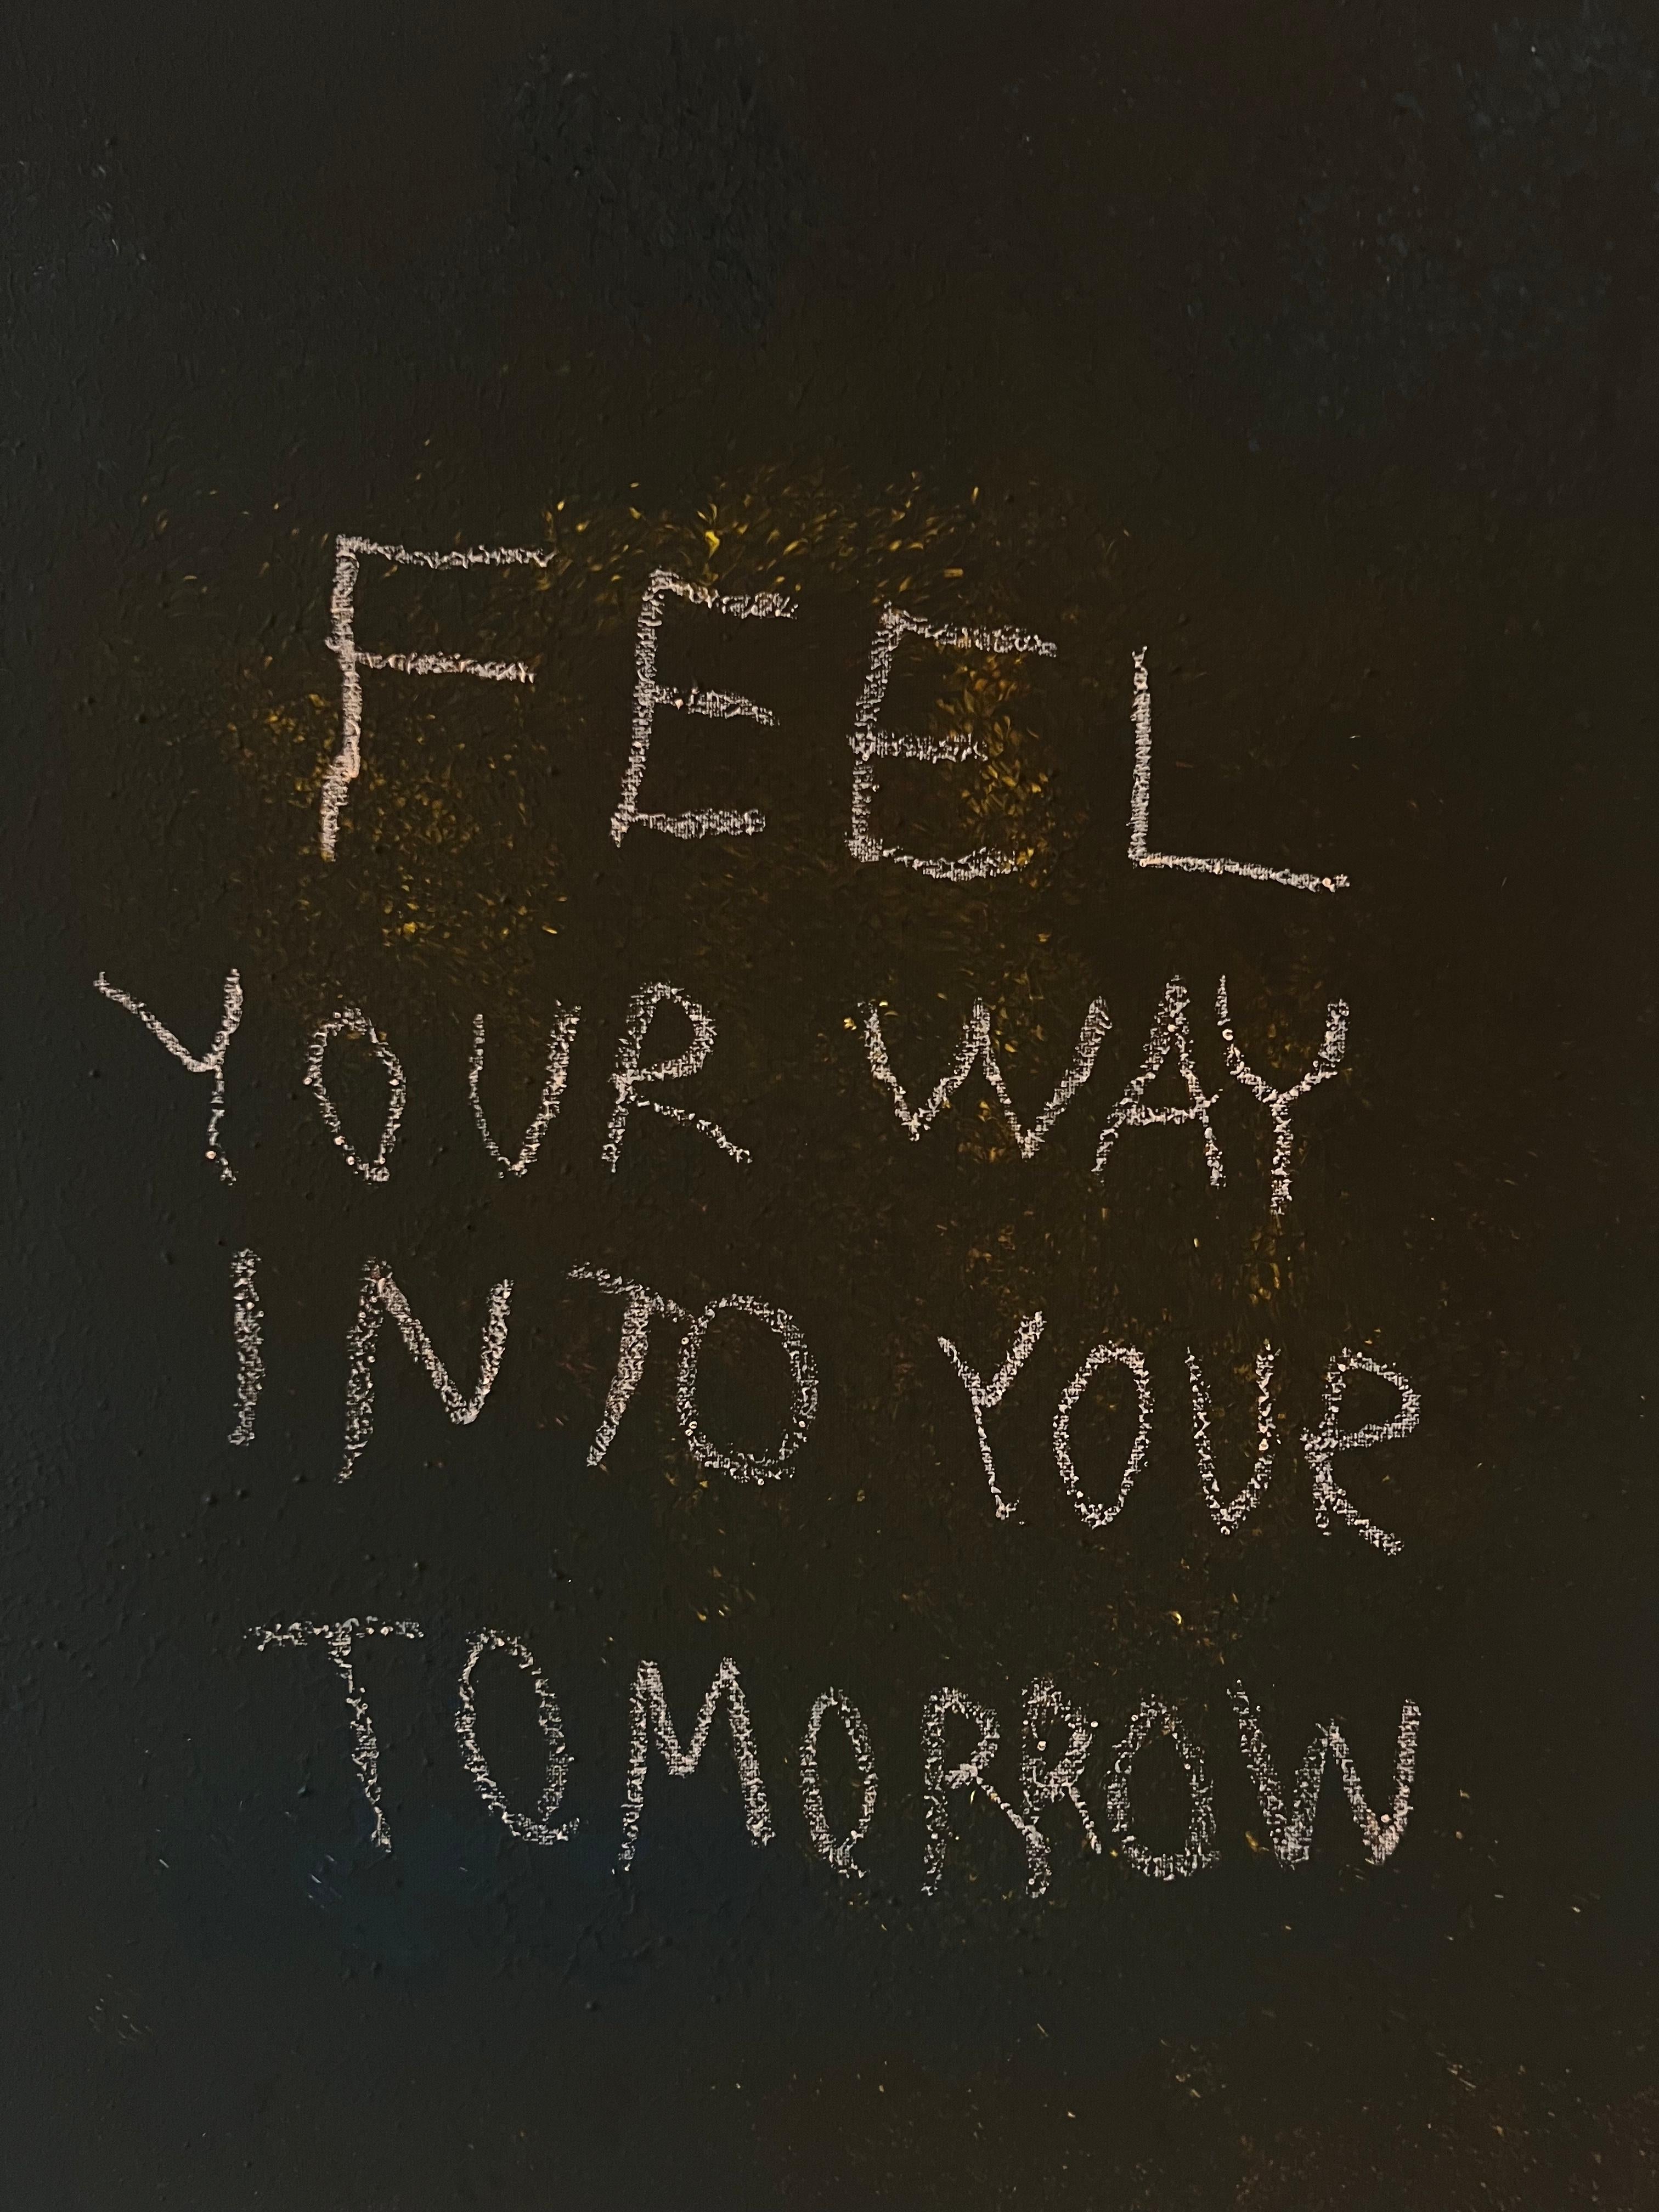 FEEL
YOUR WAY
INTO YOUR
TOMORROW